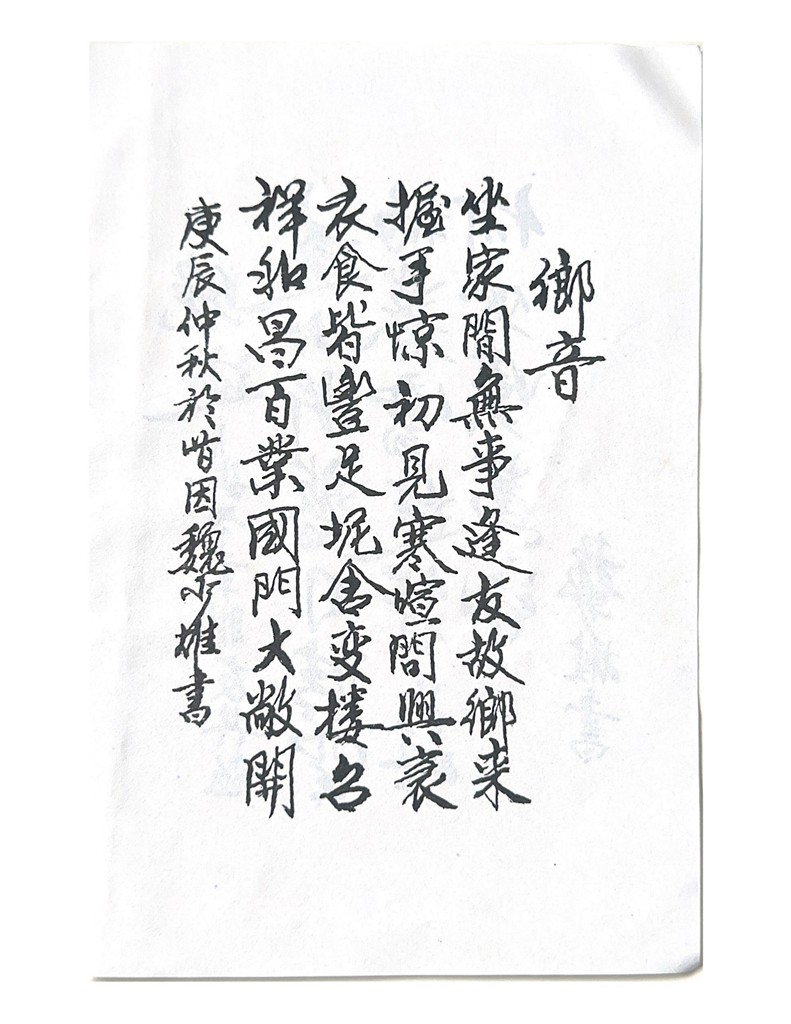 鄉音
坐家閒無事逢友故鄉来
握手惊初見寒喧問興衰
衣食皆豐足坭舍变楼台
祥和昌百業國門大敞開
庚辰仲秋於 因魏少雄書